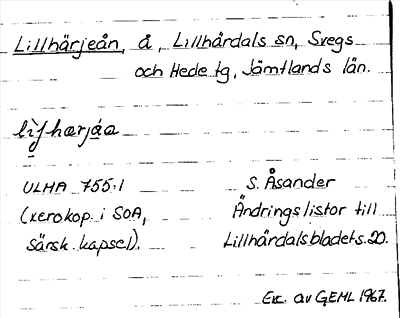 Lillhärjeån, å, Lillhärdals sn, Svegs
och Hede tg, Jämtlands län.
ULMA 755:1
(xerokop. i SOA,
särsk. kapsel).
S. Åsander
Ändringslistor till
Lillhärdalsbladet s. 20.
Exc. av GEHL 1967.